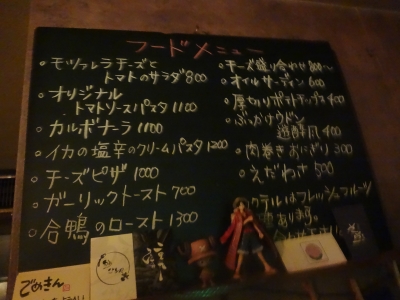 フードメニュー
。モッツァレラチーズと
トマトのサラダ 800
。オリジナル
トマトソースパスタ 1100
。カルボナーラ 1100
。イカの塩辛のクリームパスタ 1200
。チーズピザ 1000
。ガーリックトースト 700
。合鴨のロースト 1300
。チーズ盛り合わせ 800〜
。オイルサーディン 600
。厚切りポテトチップス 400
。ぶっかけウドン
400
。肉巻きおにぎり 300
。えだわさ 500
クテルはフレッシュフルーツ
あります。
でめきん